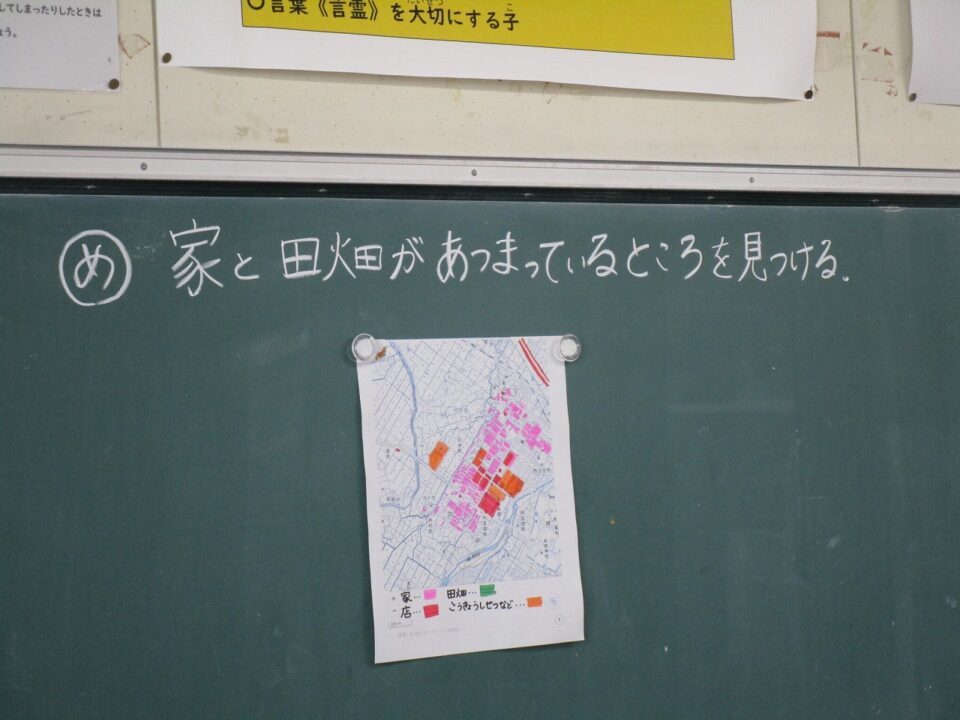 してしまったりしたときは
ょう。
○言葉《言霊》を大切にする子
たいせつ
こ
め 家と田畑があつまっているところを見つける。
家… 田畑…
店… こうきょうしせつなど…